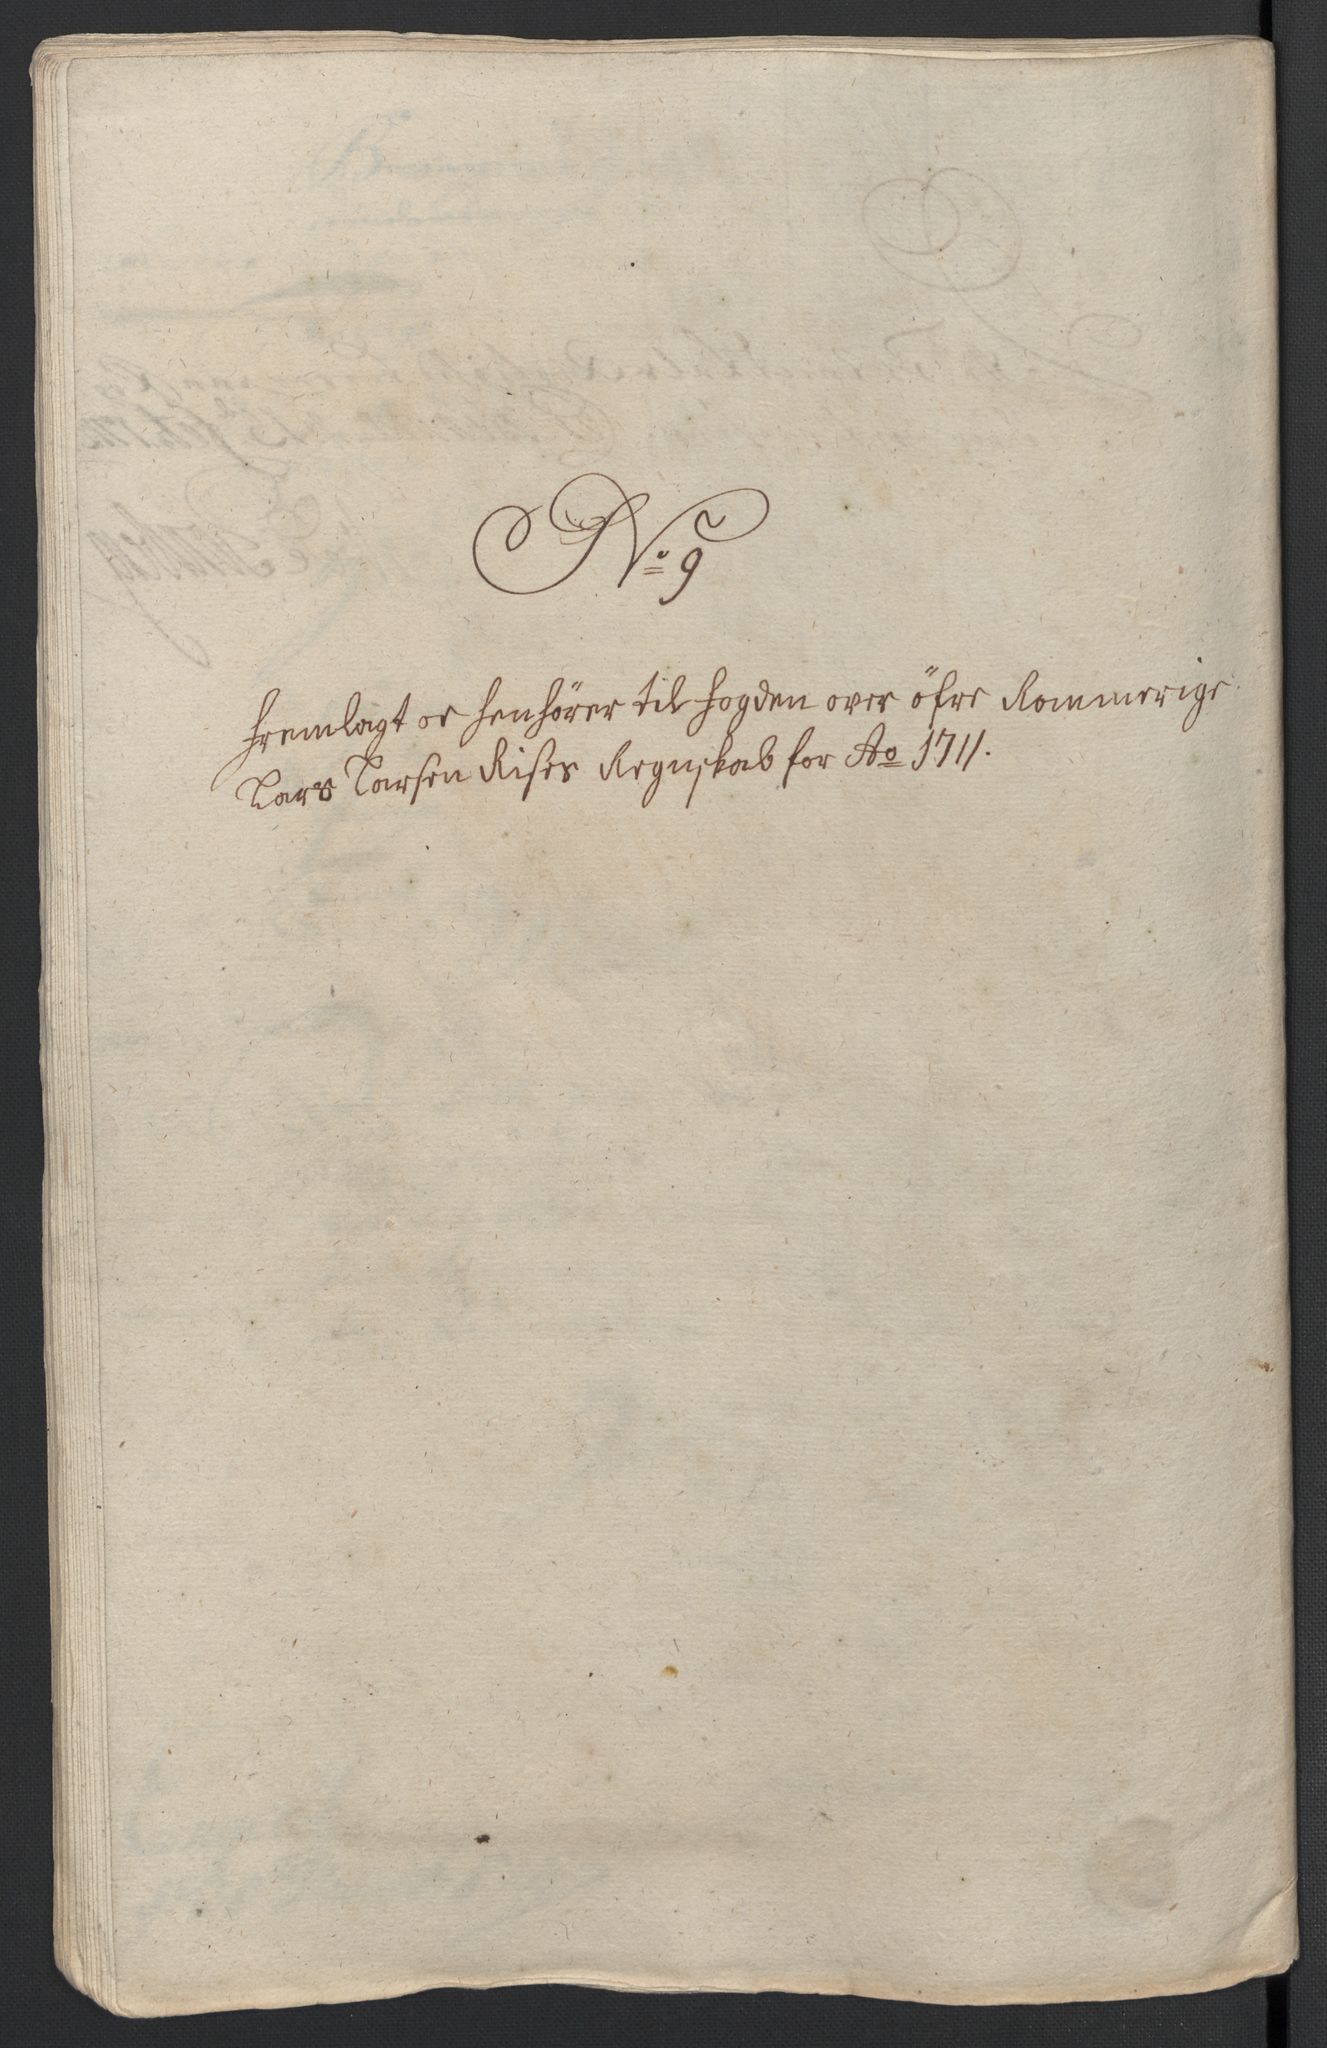 No 9
fremlagt oc henhører til fogden over öfre Rommerige
Lars Larsen Rises Regnskab for Ao 1711.